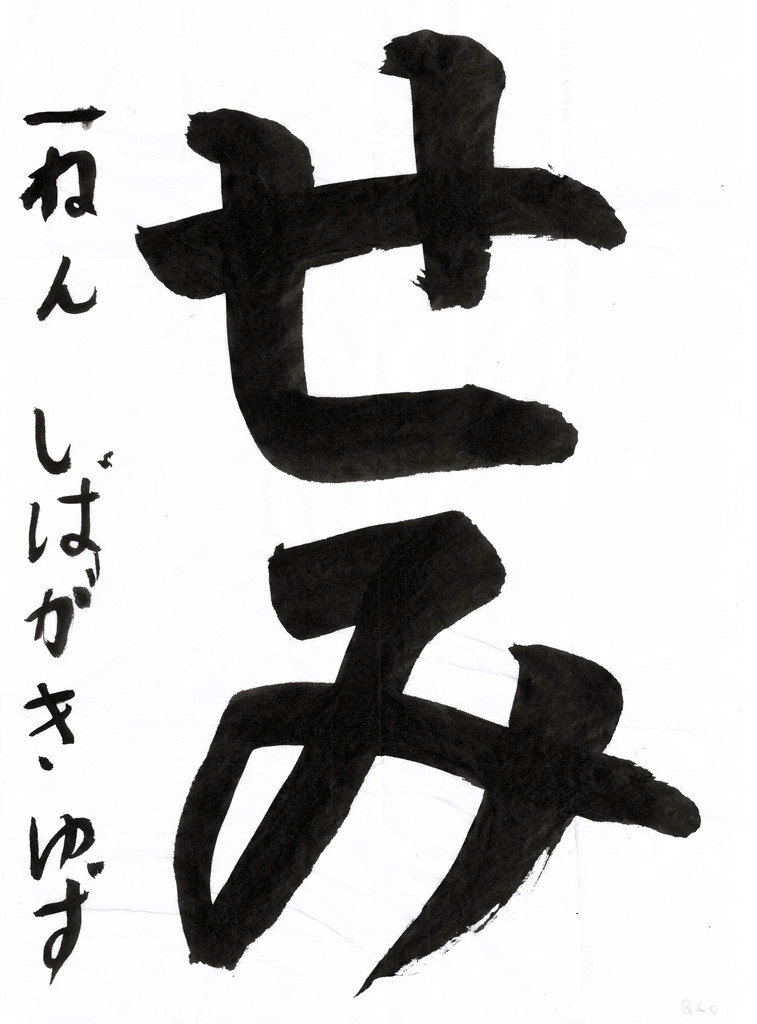 せみ
一ねん しばがき ゆず